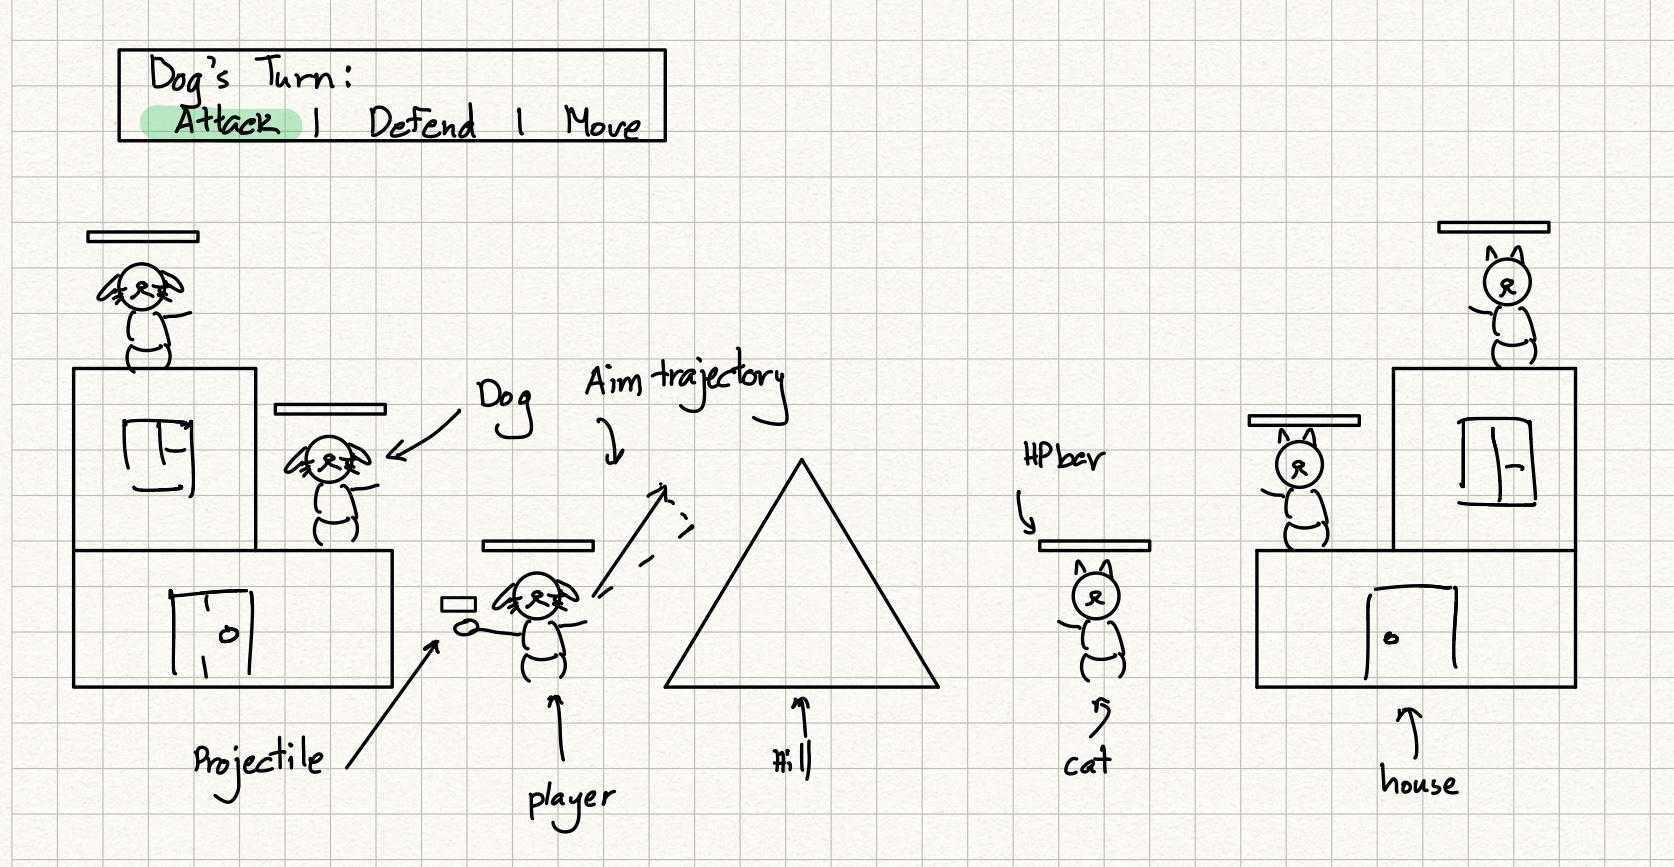 Dog's Turn:
Attack | Defend | Move
Dog
Aim trajectory
HP bar
Projectile
player
Hill
cat
house